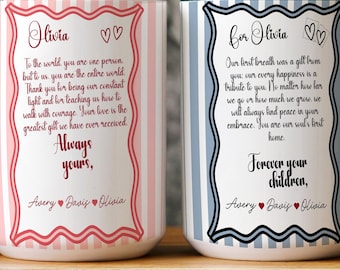 Olivia
To the world, you are one person,
but to us, you are the entire world.
Thank you for being our constant
light and for teaching us how to
walk with courage. Your love is the
greatest gift we have ever received.
Always
yours,
Avery Davis Olivia
for Olivia
Our first breath was a gift from
you; our every happiness is a
tribute to you. No matter how far
we go or how much we grow, we
will always find peace in your
embrace. You are our soul's first
home.
Forever your
children,
Avery Davis Olivia